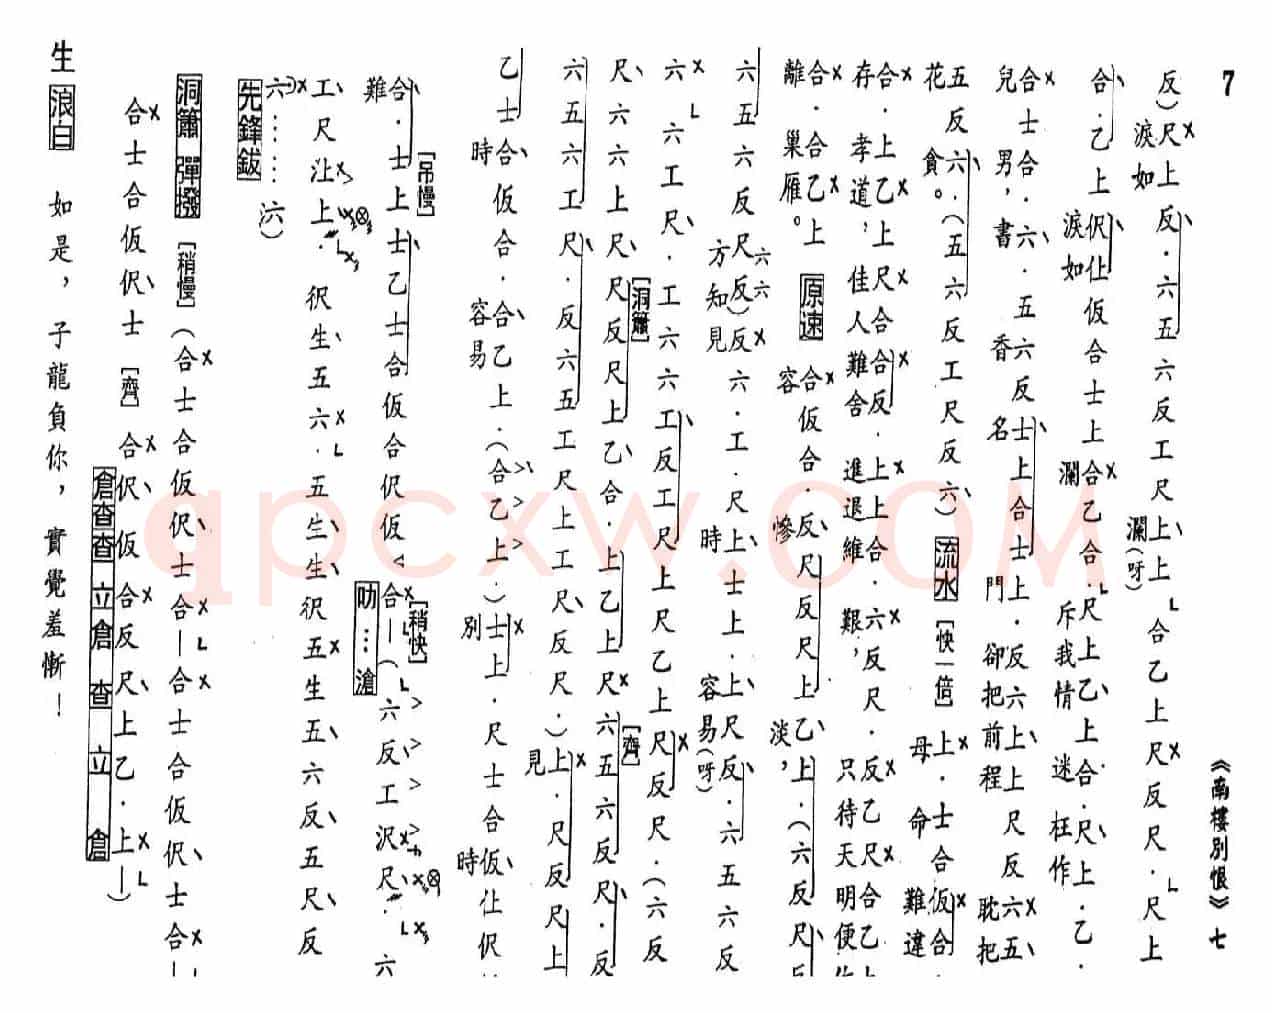 7
《南樓別恨》七
反）尺上反、六五六反工尺上上合乙上尺反尺．尺上
淚如　瀾（呀）
合．乙上伬仩仮合士上合乙合尺上乙上合．尺上．乙．
淚如　瀾　斥我情　迷　枉作
合士合．六．五六反士上合士上．反六上上尺反六五
兒　男，書　香　名　門　卻把前程　耽把
五反六．（五六反工尺反六）流水［快一倍］上．士合仮合
花　貪。　母　命　難違
合．上乙上尺合合反．上上合．六反尺．反乙尺合乙上
存　孝道，佳人難舍　進退維　艱，只待天明便
合．合乙上　原速　合仮合．反尺反尺上乙上．（六反尺反
離　巢雁。　容　慘　淡，
六五六反尺反）反六．工．尺上士上．上尺反．六五六反
六六
方知見　時　容易（呀）
六六工尺．工六六工反工尺上尺乙上尺反尺．（六反
［洞簫］
尺六六上尺尺反尺上乙合．上乙上尺六五六反尺．反
［齊］
六五六工尺．反六五工尺上工尺反尺．）上．尺反尺上
見
乙士合仮合．合乙上．（合乙上．）士上．尺士合仮仩伬
時　容易　別　時
［吊慢］
合．士上士乙士合仮合伬仮合—（六反工沢尺．六
難
［稍快］
叻…滄
工尺𠱁上．伬生五六．五生生伬五生五六反五尺反
六……六）
先鋒鈸
洞簫　彈撥　［稍慢］（合士合仮伬士合—合士合仮伬士合—
合士合仮伬士［齊］合伬仮合反尺上乙．上—）
倉查查立倉查立倉
生　浪白　如是，子龍負你，實覺羞慚！
qpcxw.com